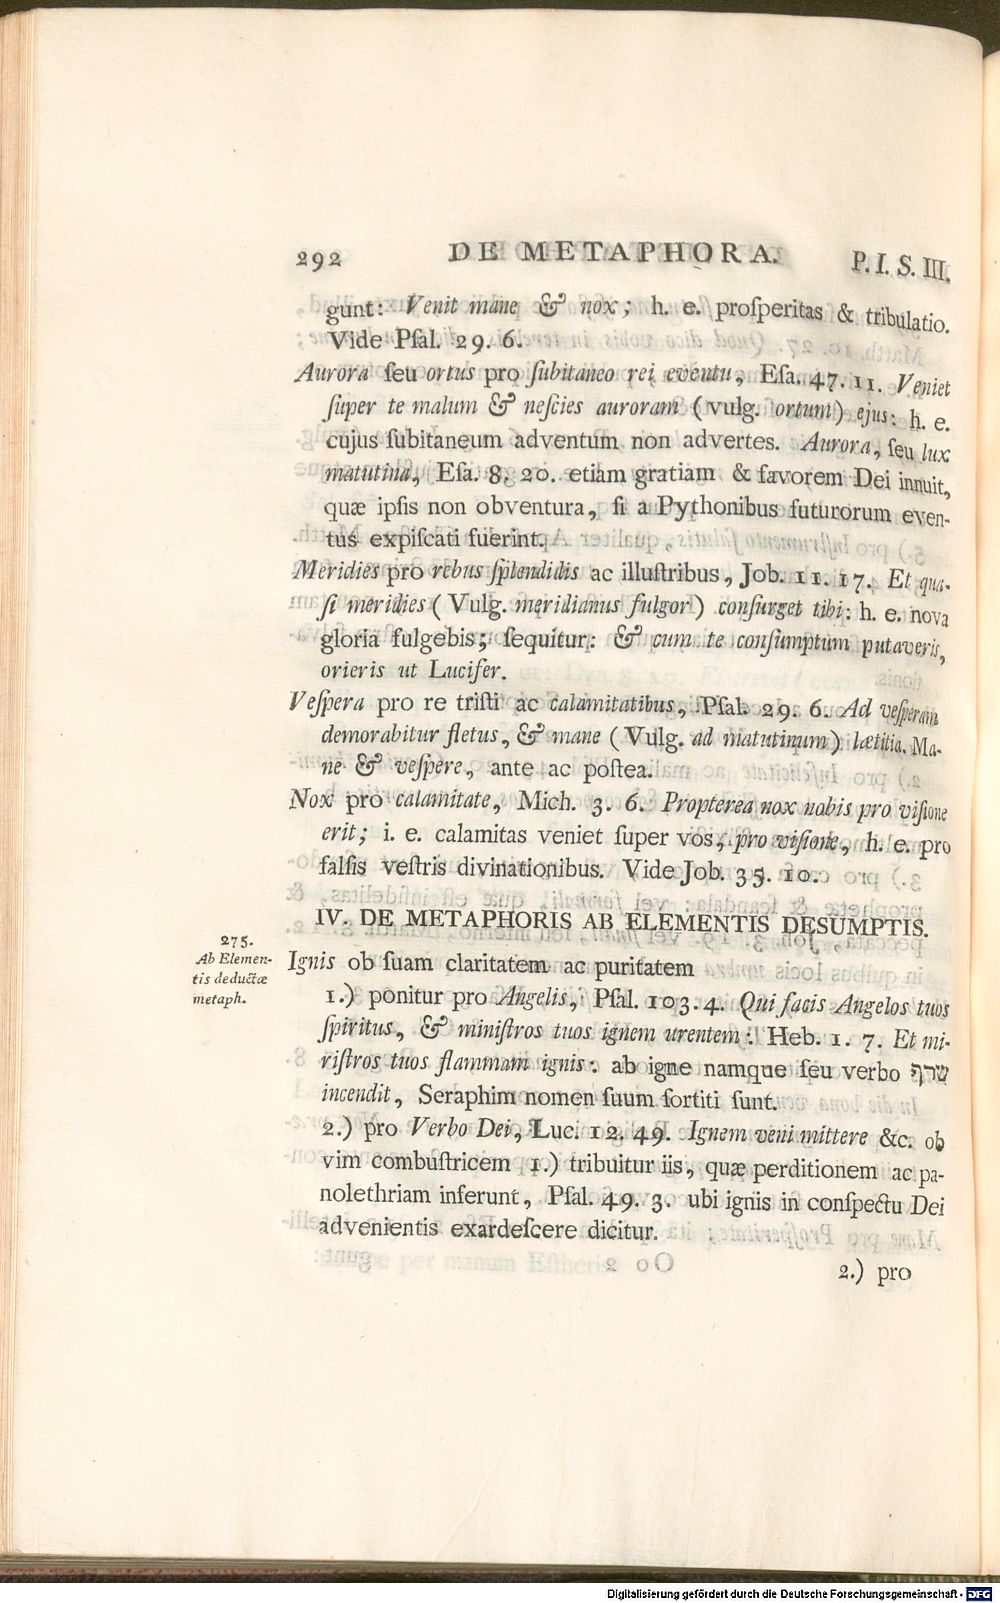 292 DE METAPHORA. P. I. S. III.
gunt: Venit mane & nox; h. e. proſperitas & tribulatio.
Vide Pſal. 29. 6.
Aurora ſeu ortus pro ſubitaneo rei eventu, Eſa. 47. 11. Veniet
ſuper te malum & neſcies auroram (vulg. ortum) ejus: h. e.
cujus ſubitaneum adventum non advertes. Aurora, ſeu lux
matutina, Eſa. 8. 20. etiam gratiam & favorem Dei innuit,
quæ ipſis non obventura, ſi a Pythonibus futurorum even-
tus expiſcati fuerint.
Meridies pro rebus ſplendidis ac illuſtribus, Job. 11. 17. Et qua-
ſi meridies (Vulg. meridianus fulgor) conſurget tibi: h. e. nova
gloria fulgebis; ſequitur: & cum te conſumptum putaveris,
orieris ut Lucifer.
Veſpera pro re triſti ac calamitatibus, Pſal. 29. 6. Ad veſperam
demorabitur fletus, & mane (Vulg. ad matutinum) lætitia. Ma-
ne & veſpere, ante ac poſtea.
Nox pro calamitate, Mich. 3. 6. Propterea nox nobis pro viſione
erit; i. e. calamitas veniet ſuper vos, pro viſione, h. e. pro
falſis veſtris divinationibus. Vide Job. 35. 10.
IV. DE METAPHORIS AB ELEMENTIS DESUMPTIS.
275.
Ab Elemen-
tis deductæ
metaph.
Ignis ob ſuam claritatem ac puritatem
1.) ponitur pro Angelis, Pſal. 103. 4. Qui facis Angelos tuos
ſpiritus, & miniſtros tuos ignem urentem: Heb. 1. 7. Et mi-
riſtros tuos flammam ignis: ab igne namque ſeu verbo שרף
incendit, Seraphim nomen ſuum ſortiti ſunt.
2.) pro Verbo Dei, Luc. 12. 49. Ignem veni mittere &c. ob
vim combuſtricem 1.) tribuitur iis, quæ perditionem ac pa-
nolethriam inferunt, Pſal. 49. 3. ubi ignis in conſpectu Dei
advenientis exardeſcere dicitur.
2.) pro
Digitalisierung gefördert durch die Deutsche Forschungsgemeinschaft - DFG